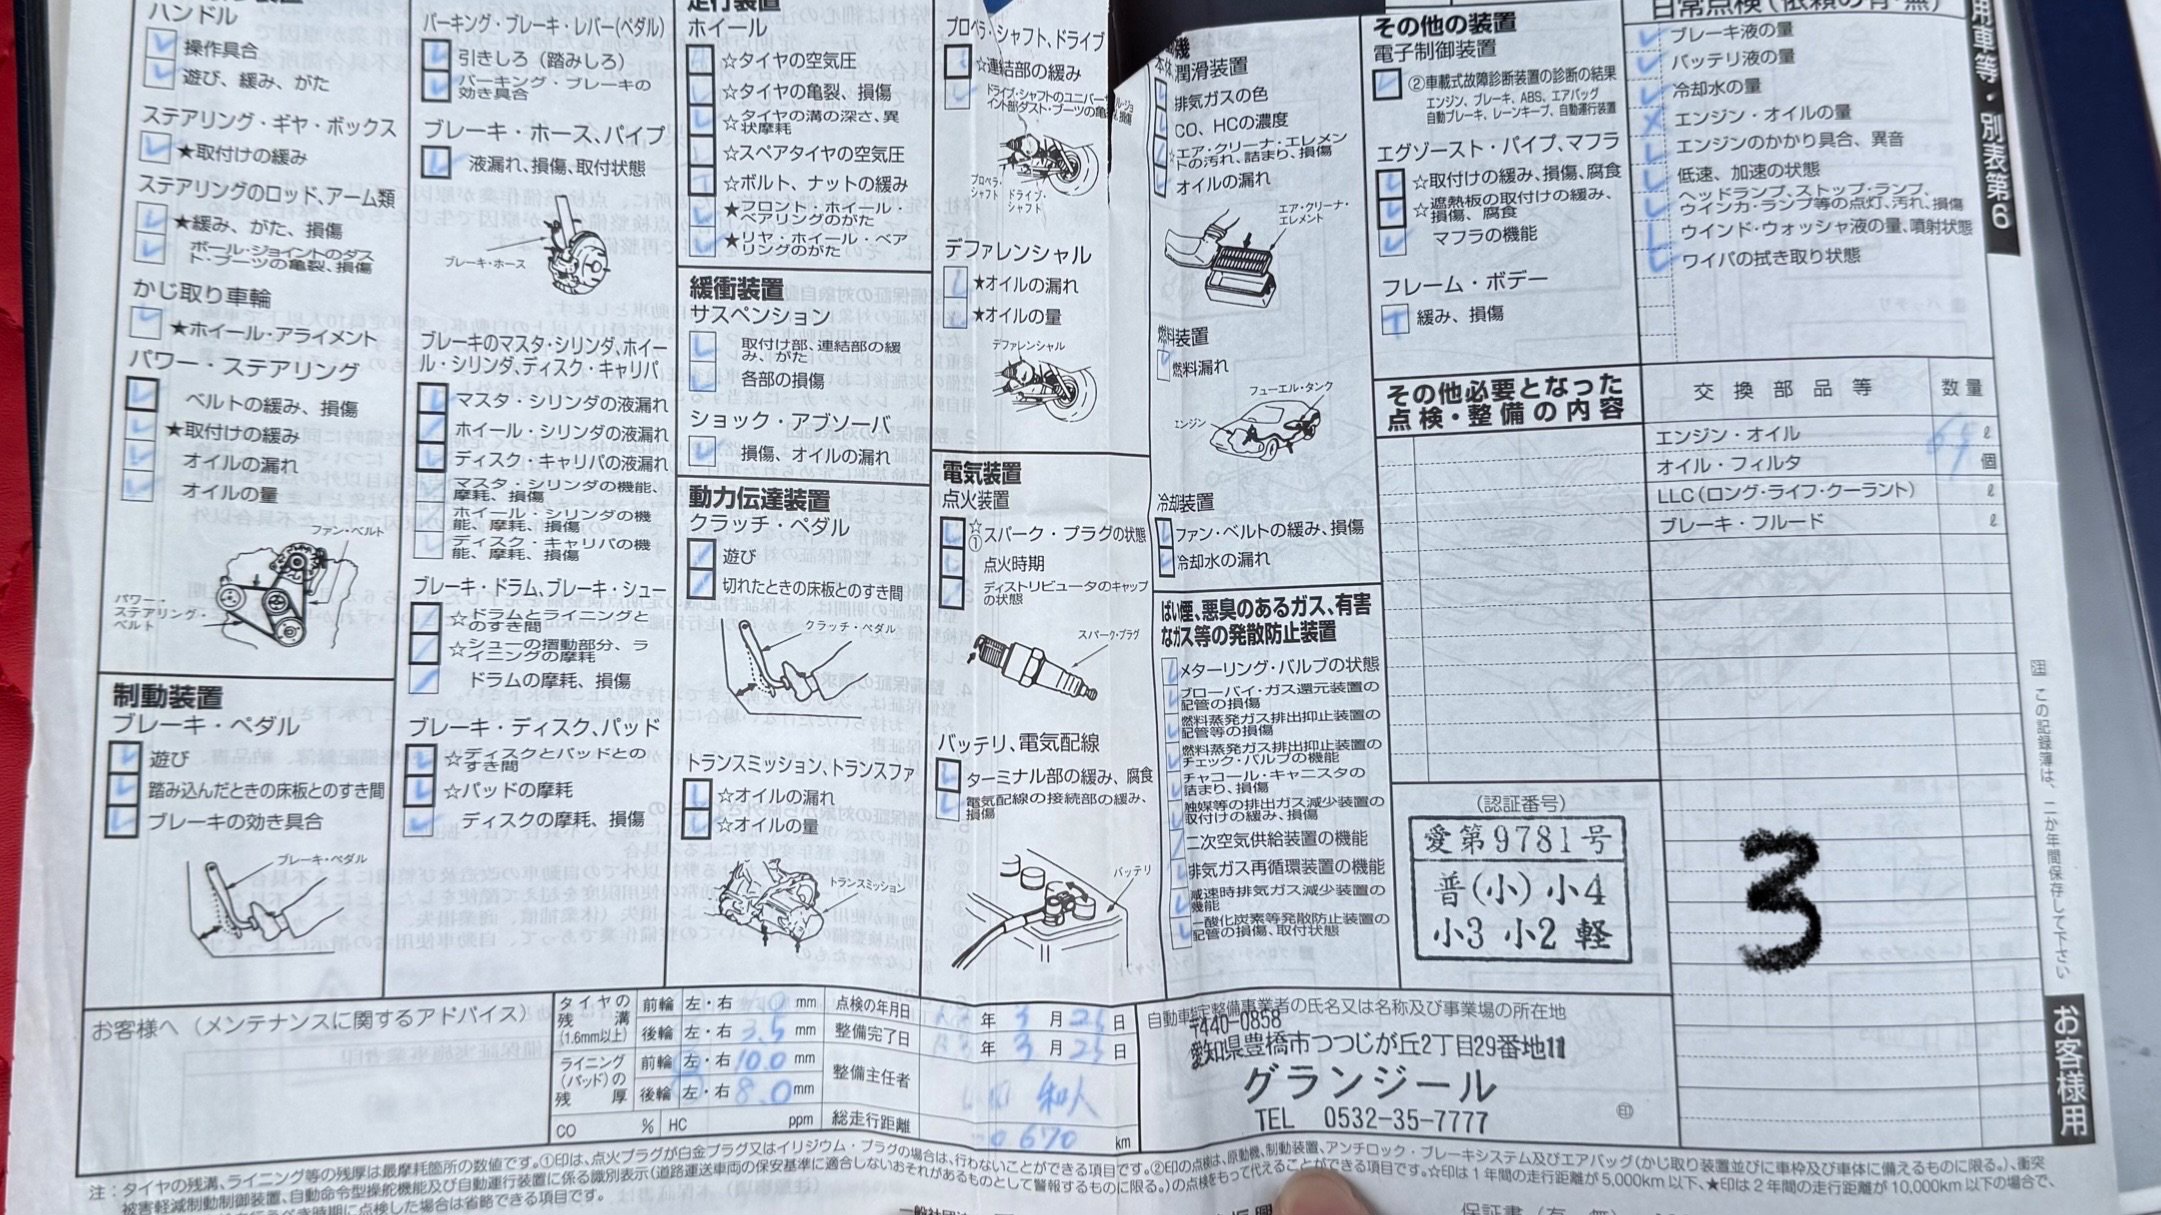 ハンドル
操作具合
遊び、緩み、がた
ステアリング・ギヤ・ボックス
★取付けの緩み
ステアリングのロッド、アーム類
★緩み、がた、損傷
ボール・ジョイントのダス
ト・ブーツの亀裂、損傷
かじ取り車輪
★ホイール・アライメント
パワー・ステアリング
ベルトの緩み、損傷
★取付けの緩み
オイルの漏れ
オイルの量
ファン・ベルト
パワー・
ステアリング・
ベルト
制動装置
ブレーキ・ペダル
遊び
踏み込んだときの床板とのすき間
ブレーキの効き具合
ブレーキ・ペダル
パーキング・ブレーキ・レバー(ペダル)
引きしろ(踏みしろ)
パーキング・ブレーキの
効き具合
ブレーキ・ホース、パイプ
液漏れ、損傷、取付状態
ブレーキ・ホース
ブレーキのマスタ・シリンダ、ホイー
ル・シリンダ、ディスク・キャリパ
マスタ・シリンダの液漏れ
ホイール・シリンダの液漏れ
ディスク・キャリパの液漏れ
マスタ・シリンダの機能、
摩耗、損傷
ホイール・シリンダの機
能、摩耗、損傷
ディスク・キャリパの機
能、摩耗、損傷
ブレーキ・ドラム、ブレーキ・シュー
☆ドラムとライニングと
のすき間
☆シューの摺動部分、ラ
イニングの摩耗
ドラムの摩耗、損傷
ブレーキ・ディスク、パッド
☆ディスクとパッドとの
すき間
☆パッドの摩耗
ディスクの摩耗、損傷
走行装置
ホイール
☆タイヤの空気圧
☆タイヤの亀裂、損傷
☆タイヤの溝の深さ、異
状摩耗
☆スペアタイヤの空気圧
☆ボルト、ナットの緩み
★フロント・ホイール・
ベアリングのがた
★リヤ・ホイール・ベア
リングのがた
緩衝装置
サスペンション
取付け部、連結部の緩
み、がた
各部の損傷
ショック・アブソーバ
損傷、オイルの漏れ
動力伝達装置
クラッチ・ペダル
遊び
切れたときの床板とのすき間
クラッチ・ペダル
トランスミッション、トランスファ
☆オイルの漏れ
☆オイルの量
トランスミッション
プロペラ・シャフト、ドライブ
☆連結部の緩み
ドライブ・シャフトのユニバー
イント部ダスト・ブーツの亀
プロペラ・
シャフト
ドライブ・
シャフト
デファレンシャル
★オイルの漏れ
★オイルの量
デファレンシャル
電気装置
点火装置
☆
①スパーク・プラグの状態
点火時期
ディストリビュータのキャップ
の状態
スパーク・プラグ
バッテリ、電気配線
ターミナル部の緩み、腐食
電気配線の接続部の緩み、
損傷
バッテリ
潤滑装置
排気ガスの色
CO、HCの濃度
エア・クリーナ・エレメン
トの汚れ、詰まり、損傷
オイルの漏れ
エア・クリーナ・
エレメント
燃料装置
燃料漏れ
フューエル・タンク
エンジン
冷却装置
ファン・ベルトの緩み、損傷
冷却水の漏れ
ばい煙、悪臭のあるガス、有害
なガス等の発散防止装置
メターリング・バルブの状態
ブローバイ・ガス還元装置の
配管の損傷
燃料蒸発ガス排出抑止装置の
配管等の損傷
燃料蒸発ガス排出抑止装置の
チェック・バルブの機能
チャコール・キャニスタの
詰まり、損傷
触媒等の排出ガス減少装置の
取付けの緩み、損傷
二次空気供給装置の機能
排気ガス再循環装置の機能
減速時排気ガス減少装置の
機能
一酸化炭素等発散防止装置の
配管の損傷、取付状態
その他の装置
電子制御装置
②車載式故障診断装置の診断の結果
エンジン、ブレーキ、ABS、エアバッグ
自動ブレーキ、レーンキープ、自動運行装置
エグゾースト・パイプ、マフラ
☆取付けの緩み、損傷、腐食
☆遮熱板の取付けの緩み、
損傷、腐食
マフラの機能
フレーム・ボデー
緩み、損傷
その他必要となった
点検・整備の内容
(認証番号)
愛第9781号
普(小)小4
小3 小2 軽
日常点検(依頼の有・無)
ブレーキ液の量
バッテリ液の量
冷却水の量
エンジン・オイルの量
エンジンのかかり具合、異音
低速、加速の状態
ヘッドランプ、ストップ・ランプ、
ウインカ・ランプ等の点灯、汚れ、損傷
ウインド・ウォッシャ液の量、噴射状態
ワイパの拭き取り状態
交換部品等 数量
エンジン・オイル ℓ
オイル・フィルタ 個
LLC(ロング・ライフ・クーラント) ℓ
ブレーキ・フルード ℓ
3
用車等・別表第6
注 この記録簿は、二か年間保存して下さい
お客様用
お客様へ(メンテナンスに関するアドバイス)
タイヤの
残溝
(1.6mm以上)
前輪 左・右 mm
後輪 左・右 3.5 mm
ライニング
(パッド)の
残厚
前輪 左・右 10.0 mm
後輪 左・右 8.0 mm
CO % HC ppm
点検の年月日 年 3 月 25 日
整備完了日 年 3 月 25 日
整備主任者
総走行距離 km
自動車特定整備事業者の氏名又は名称及び事業場の所在地
〒440-0858
愛知県豊橋市つつじが丘2丁目29番地11
グランジール
TEL 0532-35-7777
印
注:タイヤの残溝、ライニング等の残厚は最摩耗箇所の数値です。①印は、点火プラグが白金プラグ又はイリジウム・プラグの場合は、行わないことができる項目です。②印の点検は、原動機、制動装置、アンチロック・ブレーキシステム及びエアバッグ(かじ取り装置並びに車枠及び車体に備えるものに限る。)、衝突
被害軽減制動制御装置、自動命令型操舵機能及び自動運行装置に係る識別表示(道路運送車両の保安基準に適合しないおそれがあるものとして警報するものに限る。)の点検をもって代えることができる項目です。☆印は1年間の走行距離が5,000km以下、★印は2年間の走行距離が10,000km以下の場合で、